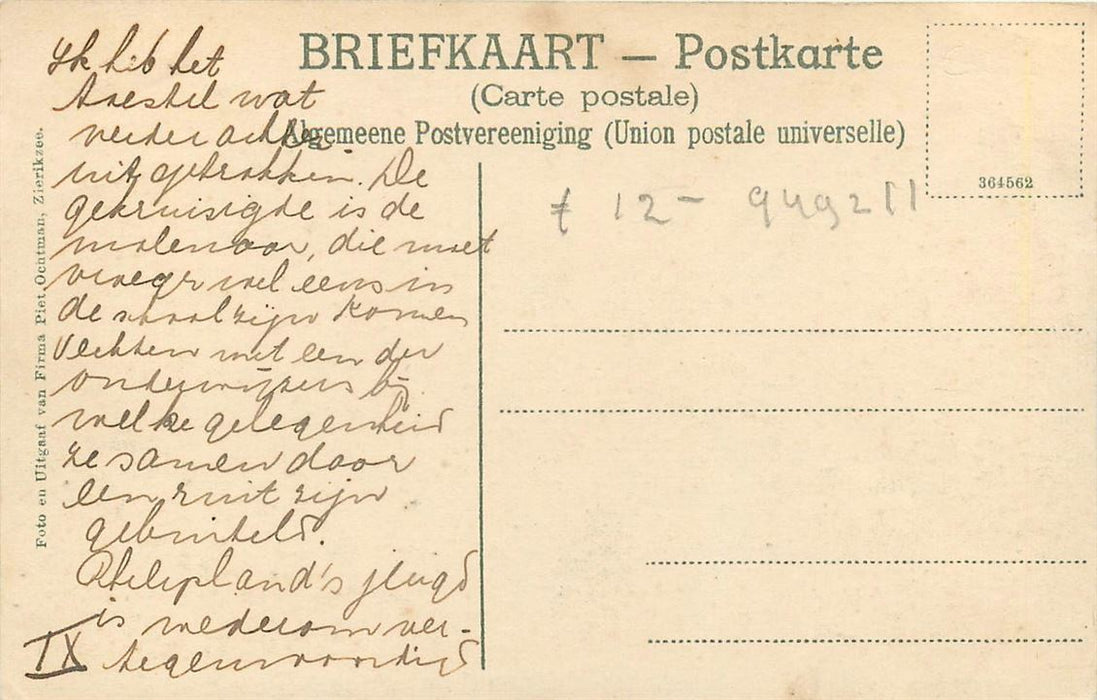 BRIEFKAART — Postkarte
(Carte postale)
Algemeene Postvereeniging (Union postale universelle)
364562
12- 949211
Foto en Uitgaaf van Firma Piet Ochtman, Zierikzee.
Ik heb het
toestel wat
verder achter
uit getrokken. De
gekruisigde is de
molenaar, die moet
vroeger wel eens in
de school zijn komen
vechten met een der
onderwijzers bij
welke gelegenheid
ze samen door
een ruit zijn
gebuiteld.
Philipland's jeugd
is wederom ver-
tegenwoordigd
IX